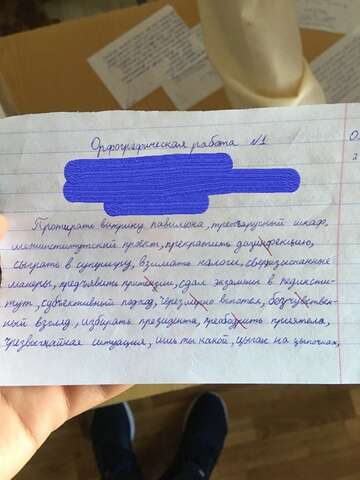 Орфографическая работа №1
Протирать витрину павильона, трёхъярусный шкаф,
межинститутский проект, прекратить дезинфекцию,
сыграть в суперигру, взимать налоги, безыскусственные
манеры, предъявить претензии, сдал экзамены в пединсти-
тут, субъективный подход, чрезмерно вспотел, безчувствен-
ный взгляд, избирать президента, преободрить приятеля,
чрезвычайная ситуация, ишь ты какой, цыган на цыпочках,